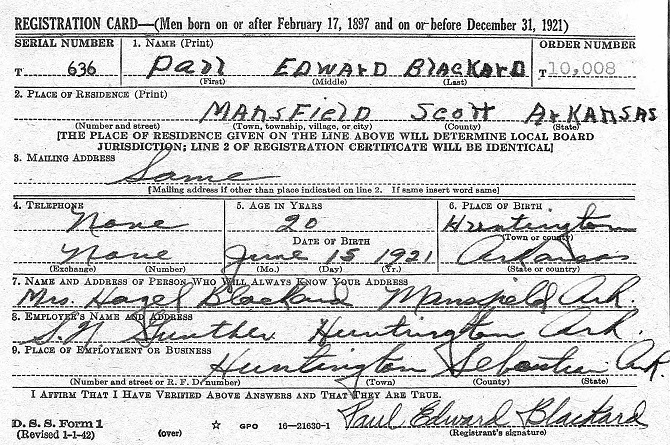 REGISTRATION CARD—(Men born on or after February 17, 1897 and on or before December 31, 1921)
SERIAL NUMBER 1. NAME (Print) ORDER NUMBER
T 636 Paul EDWARD BlacKArD T 10,008
(First) (Middle) (Last)
2. PLACE OF RESIDENCE (Print)
MANSFIElD Scott ArKANSAS
(Number and street) (Town, township, village, or city) (County) (State)
[THE PLACE OF RESIDENCE GIVEN ON THE LINE ABOVE WILL DETERMINE LOCAL BOARD
JURISDICTION; LINE 2 OF REGISTRATION CERTIFICATE WILL BE IDENTICAL]
3. MAILING ADDRESS
Same
[Mailing address if other than place indicated on line 2. If same insert word same]
4. TELEPHONE 5. AGE IN YEARS 6. PLACE OF BIRTH
None 20 Huntington
DATE OF BIRTH (Town or county)
None June 15 1921 Arkansas
(Exchange) (Number) (Mo.) (Day) (Yr.) (State or country)
7. NAME AND ADDRESS OF PERSON WHO WILL ALWAYS KNOW YOUR ADDRESS
Mrs Hazel Blackard Mansfield Ark.
8. EMPLOYER'S NAME AND ADDRESS
Huntington Ark.
9. PLACE OF EMPLOYMENT OR BUSINESS
Huntington Sebastian Ark.
(Number and street or R. F. D. number) (Town) (County) (State)
I AFFIRM THAT I HAVE VERIFIED ABOVE ANSWERS AND THAT THEY ARE TRUE.
D. S. S. Form 1 Paul Edward Blackard
(Revised 1-1-42) (over) ☆ GPO 16—21630-1 (Registrant's signature)